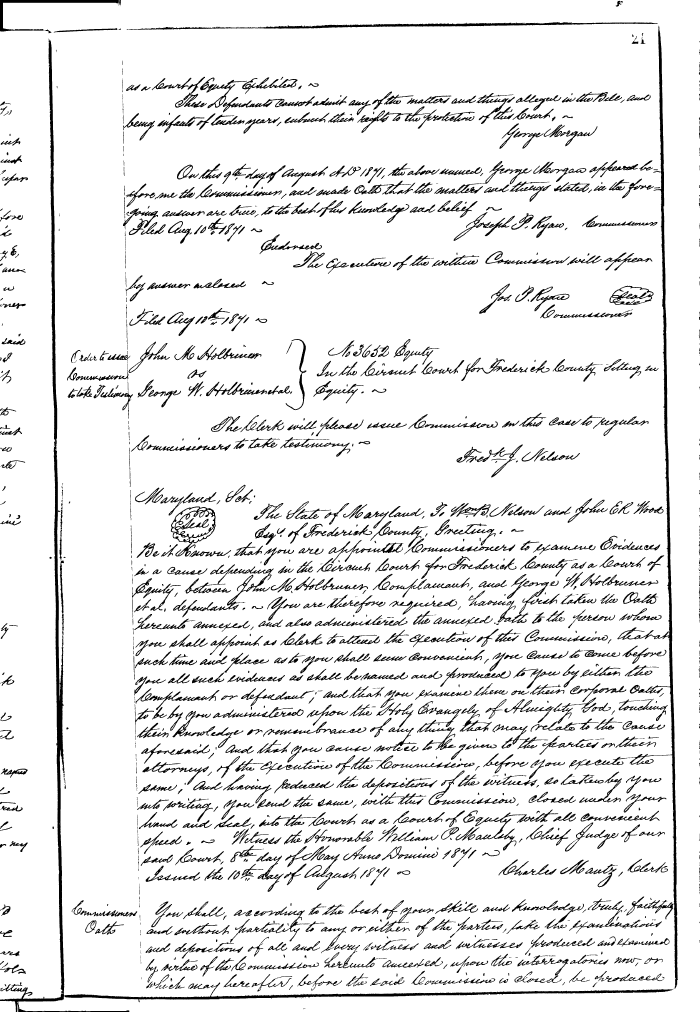 21
as a Court of Equity Exhibited. ~
These Defendants cannot admit any of the matters and things alleged in the Bill, and
being infants of tender years, submit their rights to the protection of this Court. ~
George Morgan
On this 9th day of August A.D. 1871, the above named, George Morgan appeared be=
fore me the Commissioner, and made Oath that the matters and things stated, in the fore=
going answer are true, to the best of his knowledge and belief ~
Joseph P. Ryan, Commissioner
Filed Aug. 10th 1871 ~
Endorsed
The Execution of the within Commission will appear
by answer enclosed ~
Jos. P. Ryan Seal
Commissioner
Filed Aug 10th 1871 ~
Order to issue
Commission
to take Testimony
John M Holbruner
vs
George W. Holbruner et al.
No 3652 Equity
In the Circuit Court for Frederick County, Sitting in
Equity. ~
The Clerk will please issue Commission in this case to regular
Commissioners to take testimony. ~
Fredk J. Nelson
Maryland, Sct:
Seal
The State of Maryland, To Wm B. Nelson and John E R Wood
Esqs. of Frederick County, Greeting. ~
Be it Known, that you are appointed Commissioners to examine Evidences
in a cause depending in the Circuit Court for Frederick County as a Court of
Equity, between John M. Holbruner, Complainant, and George W. Holbruner
et al., defendants. ~ You are therefore required, having, first taken the Oath
hereunto annexed, and also administered the annexed Oath to the person whom
you shall appoint as Clerk to attend the execution of this Commission, that at
such time and place as to you shall seem convenient, you cause to come before
you all such evidences as shall be named and produced to you by either the
Complainant or defendant; and that you examine them on their corporal Oaths,
to be by you administered upon the Holy Evangely of Almighty God, touching
their knowledge or remembrance of any thing that may relate to the cause
aforesaid; And that you cause notice to be given to the parties or their
attorneys, of the Execution of the Commission, before you execute the
same; And having reduced the depositions of the witness, so taken by you
into writing, you send the same, with this Commission, closed under your
hand and seal, into the Court as a Court of Equity with all convenient
speed. ~ Witness the Honorable William P. Maulsby, Chief Judge of our
said Court, 8th day of May Anno Domini 1871 ~
Issued the 10th day of August 1871 ~
Charles Mantz, Clerk
Commissioners
Oath
You shall, according to the best of your skill and knowledge, truly, faithfully
and without partiality to any or either of the parties, take the examinations
and depositions of all and every witness and witnesses produced and examined
by virtue of the Commission hereunto annexed, upon the interrogatories now, or
which may hereafter, before the said Commission is closed, be produced